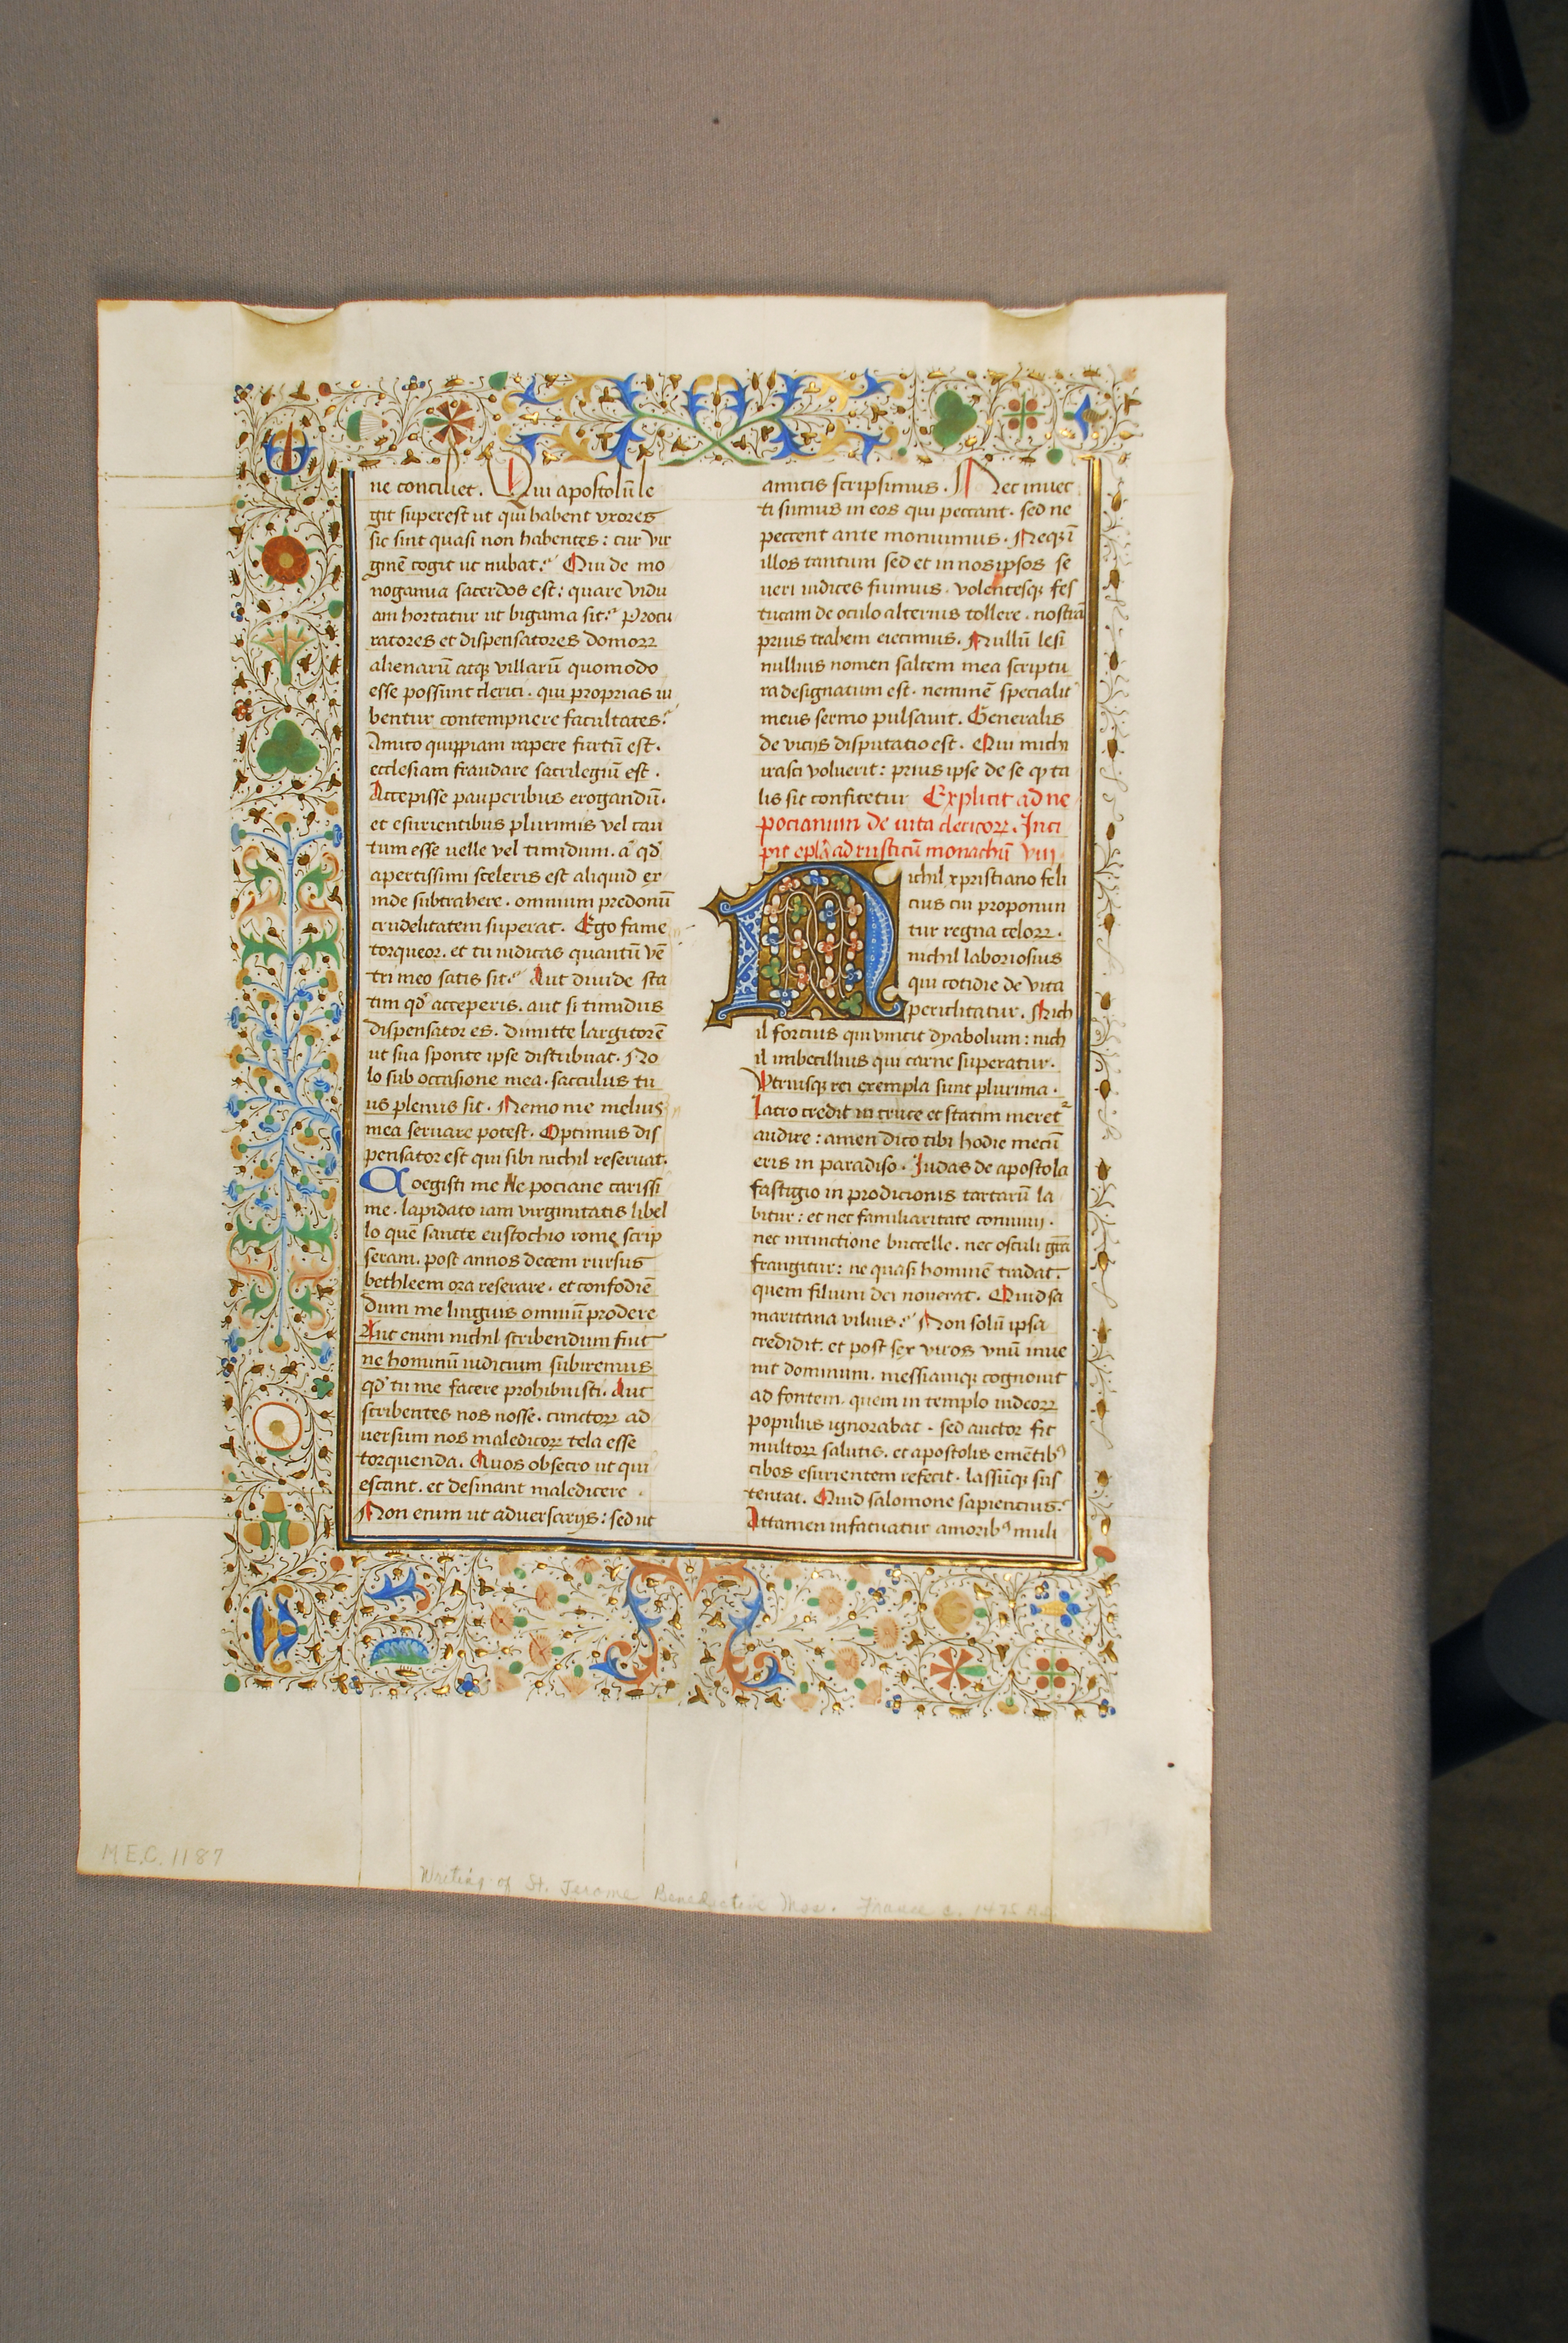 ne conciliet. Qui apostolū le
git superest ut qui habent vxores
sic sint quasi non habentes: cur vir
ginē cogit ut nubat? Qui de mo
nogamia sacerdos est: quare vidu
am hortatur ut bigama sit? Procu
ratores et dispensatores domoꝝ
alienarū atqꝫ villarū quomodo
esse possunt clerici. qui proprias iu
bentur contempnere facultates?
Amico quippiam rapere furtū est.
ecclesiam fraudare sacrilegiū est.
Accepisse pauperibus erogandū.
et esurientibus plurimis vel cau
tum esse uelle vel timidum. a qđ
apertissimi sceleris est aliquid ex
inde subtrahere. omnium predonū
crudelitatem superat. Ego fame
torqueor. et tu iudicas quantū vē
tri meo satis sit? Aut diuide sta
tim qđ acceperis. aut si timidus
dispensator es. dimitte largitorē
ut sua sponte ipse distribuat. No
lo sub occasione mea. sacculus tu
us plenus sit. Nemo me melius
mea seruare potest. Optimus dis
pensator est qui sibi nichil reseruat.
Coegisti me Ne pociane carissi
me. lapidato iam virginitatis libel
lo quē sancte eustochio rome scrip
seram. post annos decem rursus
bethleem ora reserare. et confodiē
dum me linguis omniū prodere
Aut enim nichil scribendum fuit
ne hominū iudicium subiremus
qđ tu me facere prohibuisti. Aut
scribentes nos nosse. cunctoꝝ ad
uersum nos maledicoꝝ tela esse
torquenda. Quos obsecro ut qui
escant. et desinant maledicere.
Non enim ut aduersarijs: sed ut
amicis scripsimus. Nec inuec
ti sumus in eos qui peccant. sed ne
peccent ante monuimus. Neqꝫ ī
illos tantum sed et in nos ipsos se
ueri iudices fuimus. volentesqꝫ fes
tucam de oculo alterius tollere. nostrā
prius trabem eiecimus. Nullū lesi
nullius nomen saltem mea scriptu
ra designatum est. neminē specialit
meus sermo pulsauit. Generalis
de vicijs disputatio est. Qui michi
irasci voluerit: prius ipse de se qꝫ ta
lis sit confitetur Explicit ad ne
pocianum de uita clericoꝝ. Inci
pit epl̄a ad rusticū monachū viij
Nichil xpristiano feli
cius cui proponun
tur regna celoꝝ.
nichil laboriosius
qui cotidie de vita
periclitatur. Nich
il forcius qui vincit dyabolum: nich
il imbecillius qui carne superatur.
Vtriusqꝫ rei exempla sunt plurima.
latro credit in cruce et statim meret᷑
audire: amen dico tibi hodie mecū
eris in paradiso. Iudas de apostola
fastigio in prodicionis tartarū la
bitur: et nec familiaritate conuiuij.
nec intinctione buccelle. nec osculi gr̄a
frangitur: ne quasi hominē tradat.
quem filium dei nouerat. Quid sa
maritana vilius? Non solū ipsa
credidit. et post sex viros vnū inue
nit dominum. messiamqꝫ cognouit
ad fontem. quem in templo iudeoꝝ
populus ignorabat. sed auctor fit
multoꝝ salutis. et apostolis emētibꝰ
cibos esurientem refecit. lassūqꝫ sus
tentat. Quid salomone sapiencius?
Attamen infatuatur amoribꝰ muli
M.E.C. 1187
Writing of St. Jerome Benedictine Mss. France c. 1475 A.D.